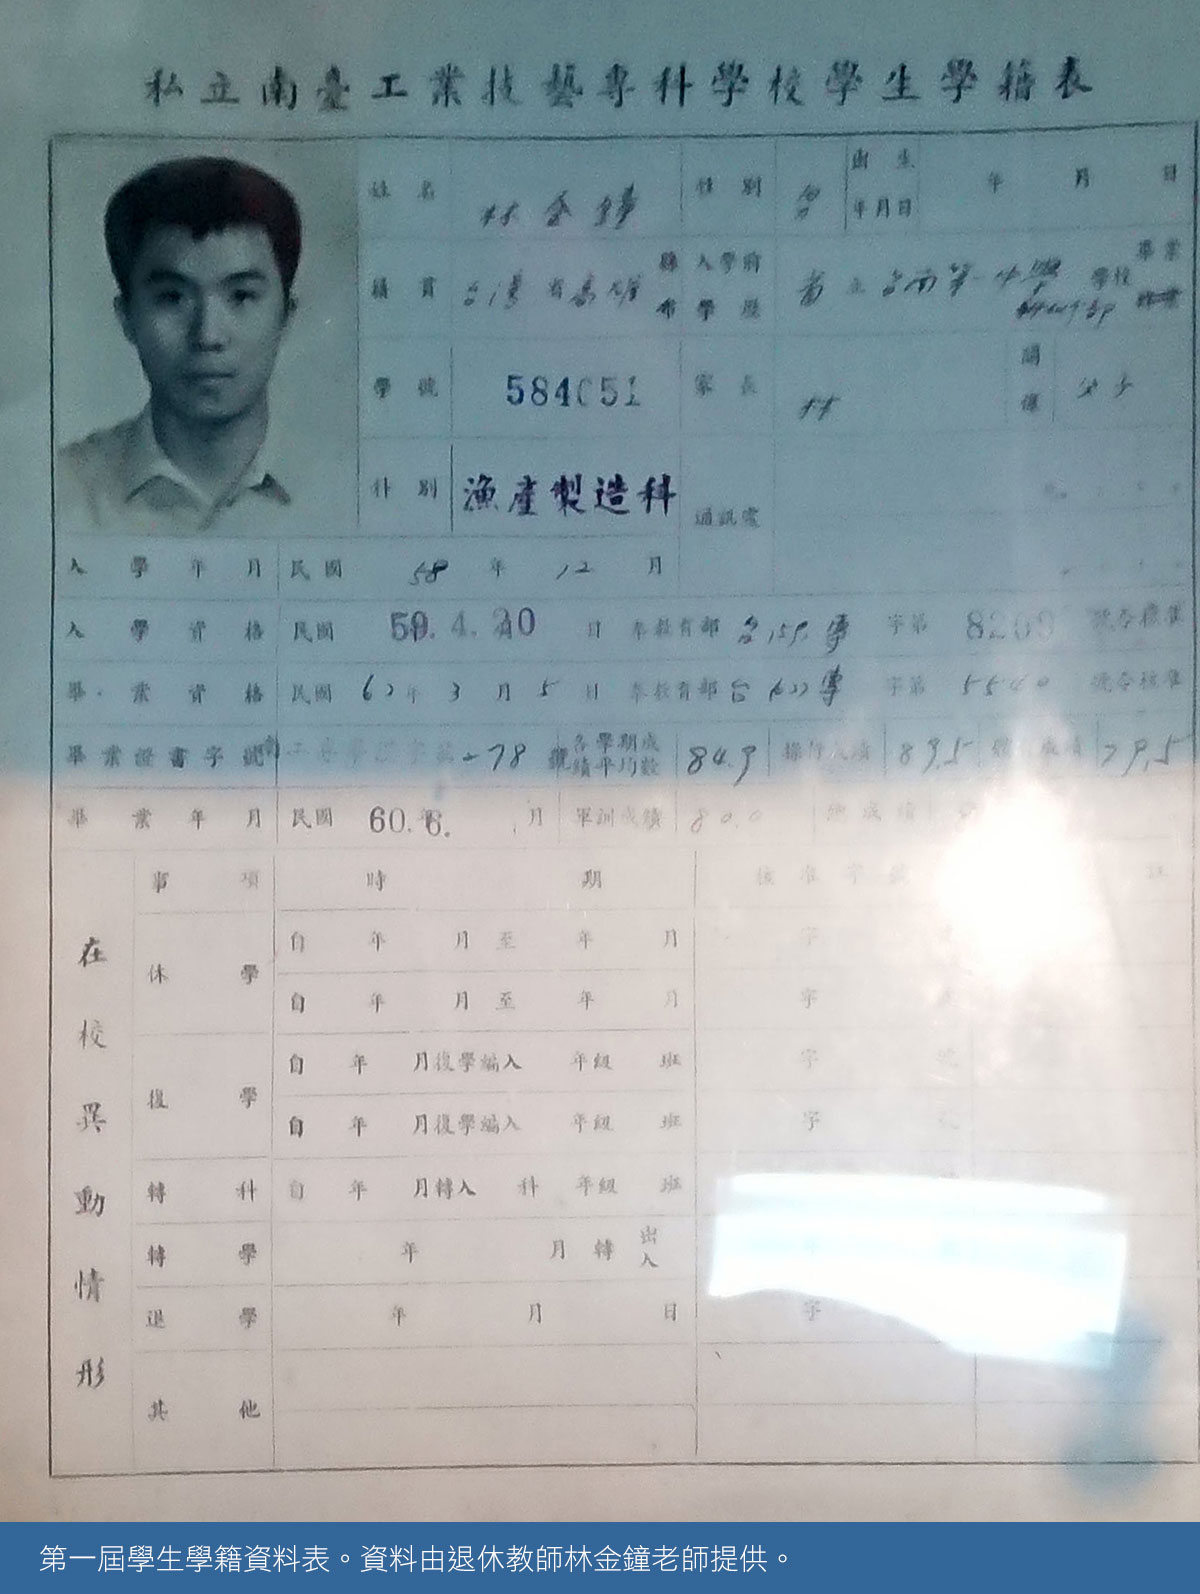 私立南臺工業技藝專科學校學生學籍表
姓名 林金鐘 性別 男 出生年月日 年 月 日
籍貫 台灣省高雄 縣市 入學前學歷 省立台南第一中學 學校 畢業
學號 584051 家長 林 關係 父子
科別 漁產製造科 通訊處
入學年月 民國 58 年 12 月
入學資格 民國 59.4.20 日 奉教育部 台(59)專 字第 8209 號令核准
畢業資格 民國 62 年 3 月 5 日 奉教育部 台(62)專 字第 5540 號令核准
畢業證書字號 78 號 各學期成績平均數 84.9 操行成績 89.5 體育成績 79.5
畢業年月 民國 60.6. 月 軍訓成績 80.0 總成績
在校異動情形
事項 時期 核准字號 註
休學 自 年 月至 年 月 字
自 年 月至 年 月 字
復學 自 年 月復學編入 年級 班 字 號
自 年 月復學編入 年級 班 字
轉科 自 年 月轉入 科 年級 班
轉學 年 月 轉 出入
退學 年 月 日 字
其他
第一屆學生學籍資料表。資料由退休教師林金鐘老師提供。